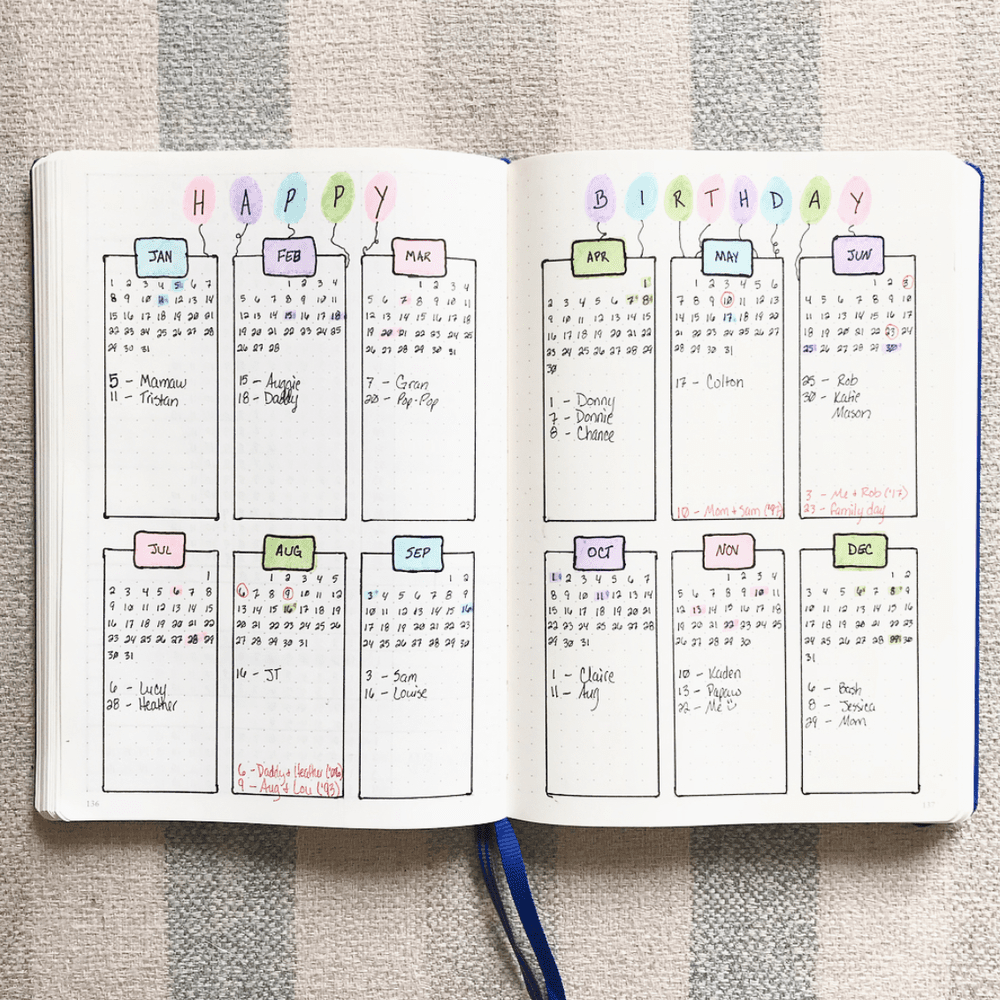 HAPPY
BIRTHDAY
JAN
1 2 3 4 5 6 7
8 9 10 11 12 13 14
15 16 17 18 19 20 21
22 23 24 25 26 27 28
29 30 31
5 - Mamaw
11 - Tristan
FEB
1 2 3 4
5 6 7 8 9 10 11
12 13 14 15 16 17 18
19 20 21 22 23 24 25
26 27 28
15 - Auggie
18 - Daddy
MAR
1 2 3 4
5 6 7 8 9 10 11
12 13 14 15 16 17 18
19 20 21 22 23 24 25
26 27 28 29 30 31
7 - Gran
20 - Pop-Pop
APR
1
2 3 4 5 6 7 8
9 10 11 12 13 14 15
16 17 18 19 20 21 22
23 24 25 26 27 28 29
30
1 - Donny
7 - Donnie
8 - Chance
MAY
1 2 3 4 5 6
7 8 9 10 11 12 13
14 15 16 17 18 19 20
21 22 23 24 25 26 27
28 29 30 31
17 - Colton
10 - Mom + Sam ('97)
JUN
1 2 3
4 5 6 7 8 9 10
11 12 13 14 15 16 17
18 19 20 21 22 23 24
25 26 27 28 29 30
25 - Rob
30 - Katie
Mason
3 - Me + Rob ('17)
23 - family day
JUL
1
2 3 4 5 6 7 8
9 10 11 12 13 14 15
16 17 18 19 20 21 22
23 24 25 26 27 28 29
30 31
6 - Lucy
28 - Heather
AUG
1 2 3 4 5
6 7 8 9 10 11 12
13 14 15 16 17 18 19
20 21 22 23 24 25 26
27 28 29 30 31
16 - JT
6 - Daddy + Heather ('06)
9 - Aug + Lou ('93)
SEP
1 2
3 4 5 6 7 8 9
10 11 12 13 14 15 16
17 18 19 20 21 22 23
24 25 26 27 28 29 30
3 - Sam
16 - Louise
OCT
1 2 3 4 5 6 7
8 9 10 11 12 13 14
15 16 17 18 19 20 21
22 23 24 25 26 27 28
29 30 31
1 - Claire
11 - Aug
NOV
1 2 3 4
5 6 7 8 9 10 11
12 13 14 15 16 17 18
19 20 21 22 23 24 25
26 27 28 29 30
10 - Kaden
13 - Papaw
22 - Me
DEC
1 2
3 4 5 6 7 8 9
10 11 12 13 14 15 16
17 18 19 20 21 22 23
24 25 26 27 28 29 30
31
6 - Bash
8 - Jessica
29 - Mom
136
137